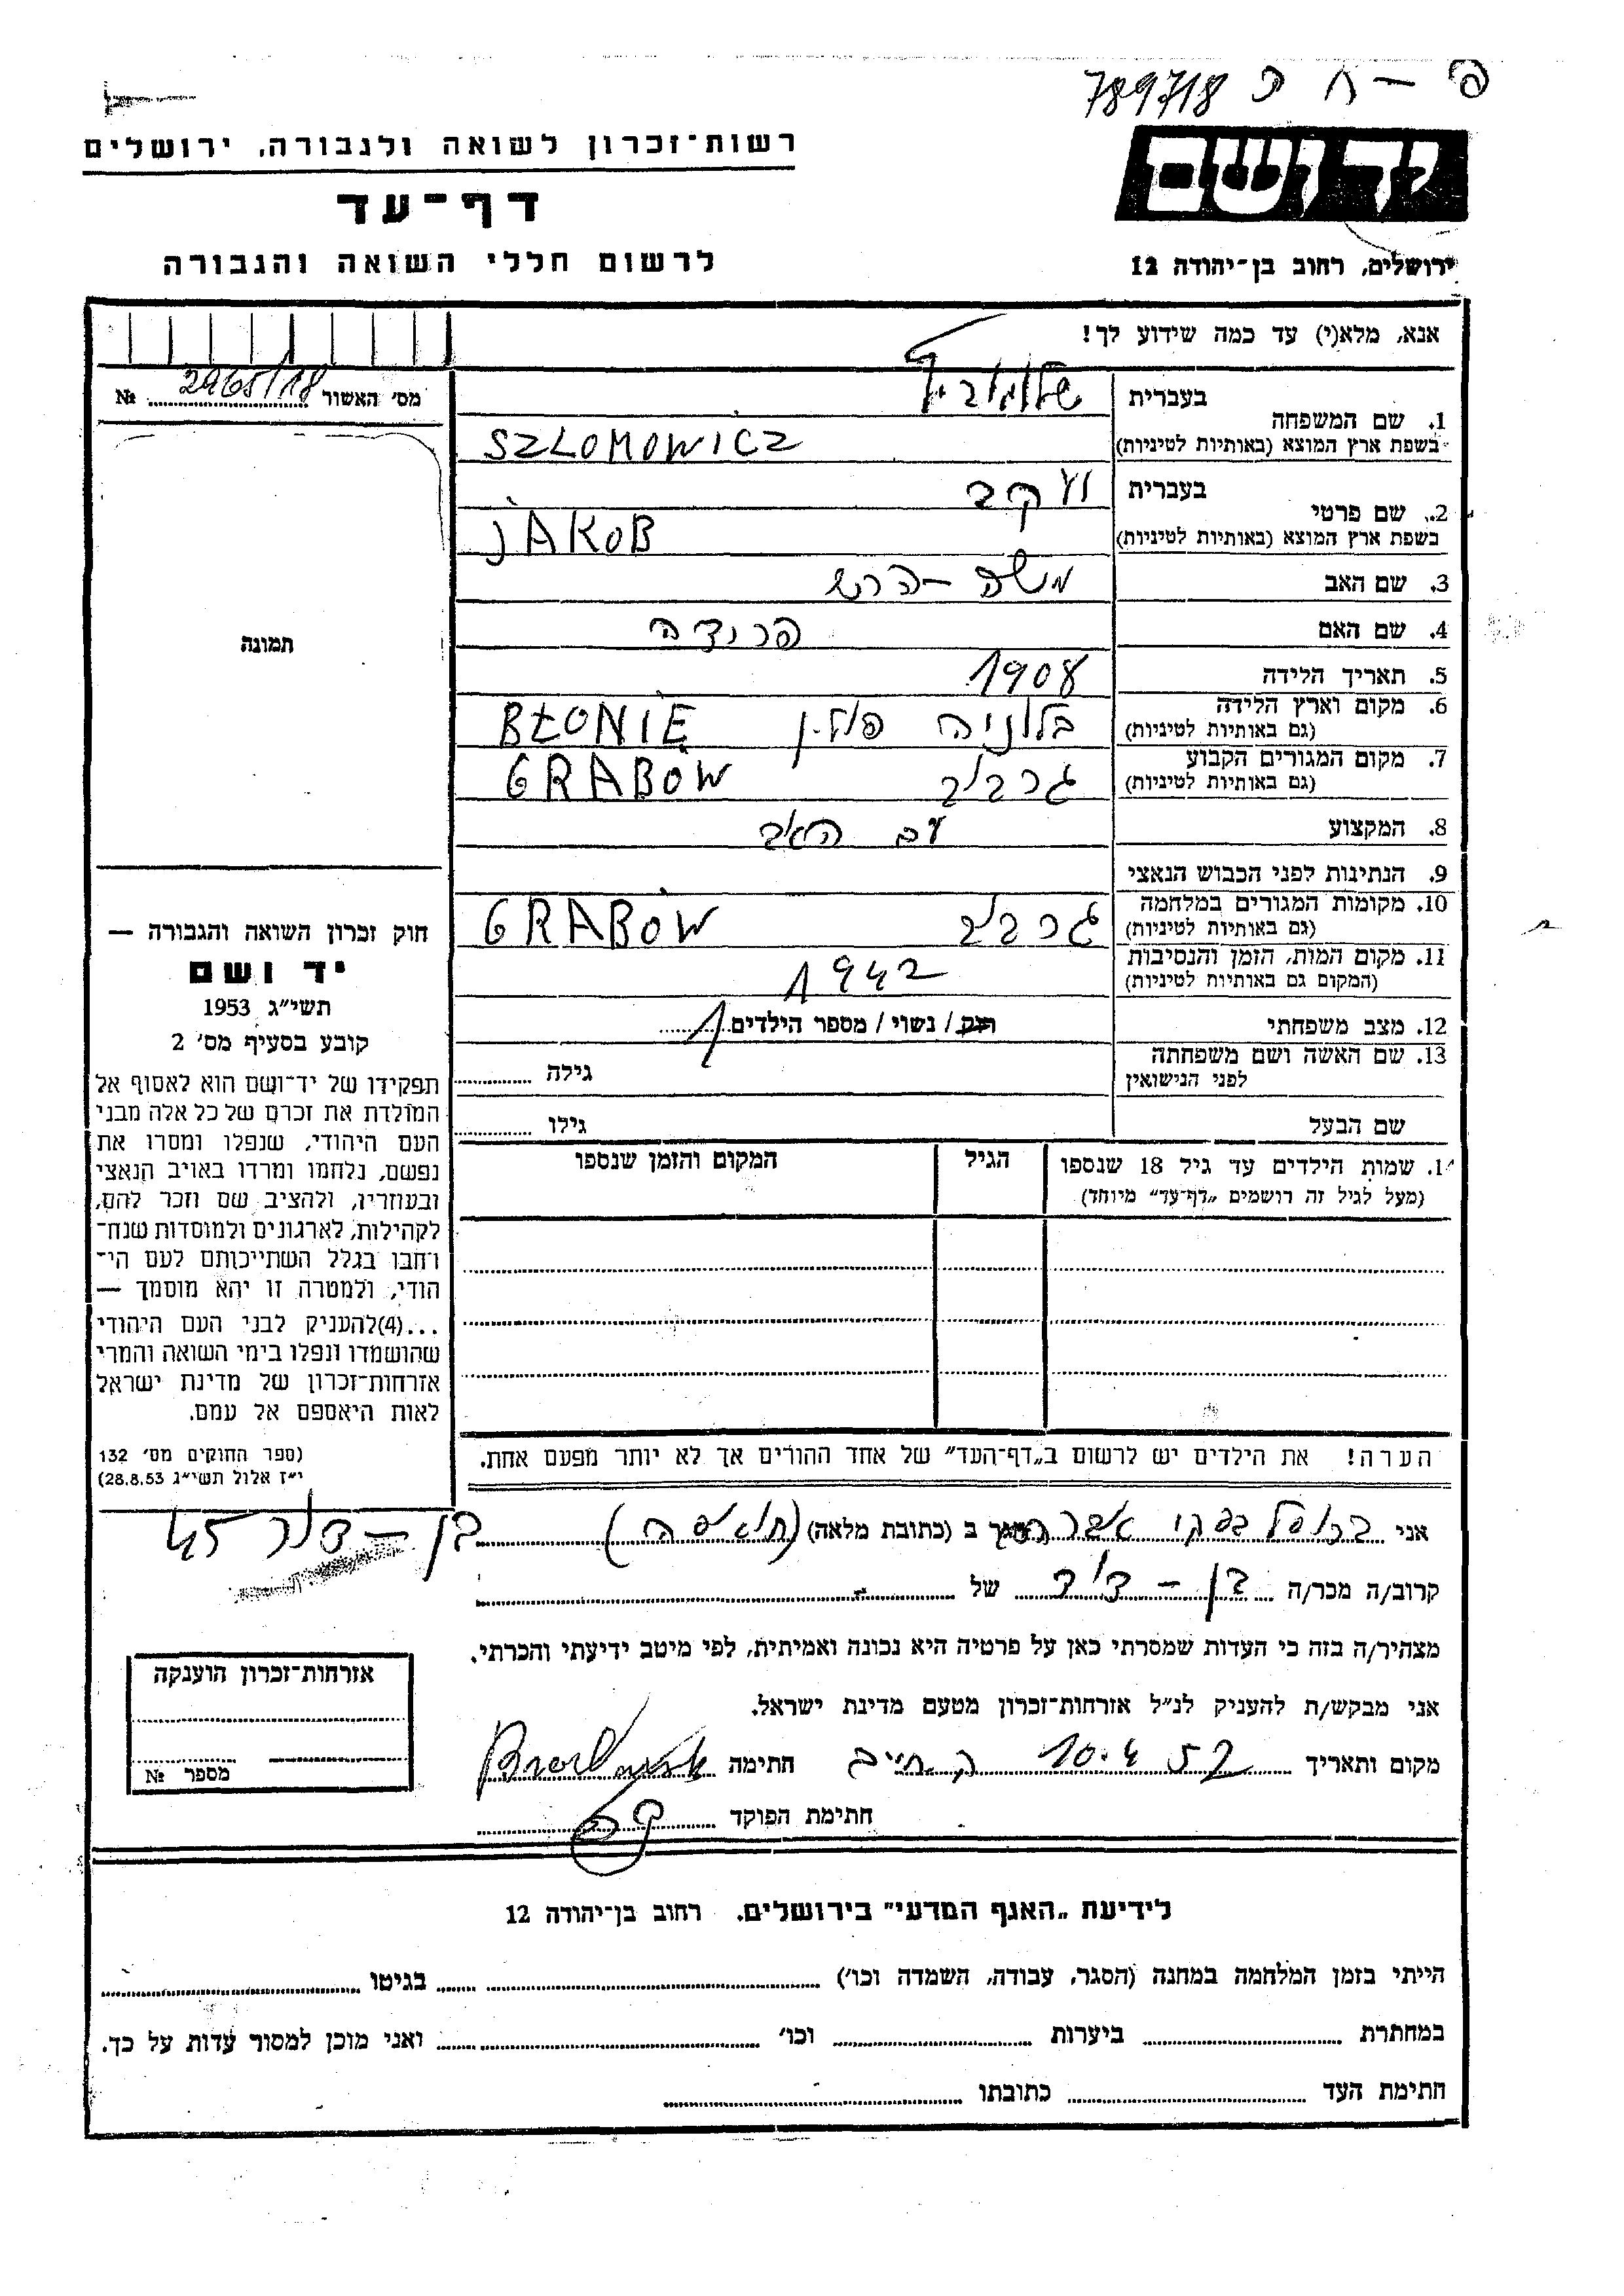 789718
רשות־זכרון לשואה ולגבורה, ירושלים
יד ושם
דף־עד
לרשום חללי השואה והגבורה
ירושלים, רחוב בן־יהודה 12
אנא, מלא(י) עד כמה שידוע לך!
מס׳ האשור № 2965/18
תמונה
1. שם המשפחה בעברית
בשפת ארץ המוצא (באותיות לטיניות) SZLOMOWICZ
2. שם פרטי בעברית יעקב
בשפת ארץ המוצא (באותיות לטיניות) JAKOB
3. שם האב משה - הרש
4. שם האם
5. תאריך הלידה 1908
6. מקום וארץ הלידה בלוניה פולין BŁONIE
(גם באותיות לטיניות)
7. מקום המגורים הקבוע גרבוב GRABOW
(גם באותיות לטיניות)
8. המקצוע עם האב
9. הנתינות לפני הכבוש הנאצי
10. מקומות המגורים במלחמה גרבוב GRABOW
(גם באותיות לטיניות)
11. מקום המות, הזמן והנסיבות 1942
(המקום גם באותיות לטיניות)
12. מצב משפחתי רוק / נשוי / מספר הילדים 1
13. שם האשה ושם משפחתה
לפני הנישואין גילה
שם הבעל גילו
1. שמות הילדים עד גיל 18 שנספו הגיל המקום והזמן שנספו
(מעל לגיל זה רושמים „דף־עד״ מיוחד)
חוק זכרון השואה והגבורה —
יד ושם
תשי״ג 1953
קובע בסעיף מס׳ 2
תפקידו של יד־ושם הוא לאסוף אל
המולדת את זכרם של כל אלה מבני
העם היהודי, שנפלו ומסרו את
נפשם, נלחמו ומרדו באויב הנאצי
ובעוזריו, ולהציב שם וזכר להם,
לקהילות, לארגונים ולמוסדות שנח־
רבו בגלל השתייכותם לעם הי־
הודי, ולמטרה זו יהא מוסמך —
...(4)להעניק לבני העם היהודי
שהושמדו ונפלו בימי השואה והמרי
אזרחות־זכרון של מדינת ישראל
לאות היאספם אל עמם.
(ספר החוקים מס׳ 132
י״ז אלול תשי״ג 28.8.53)
הערה! את הילדים יש לרשום ב„דף־העד״ של אחד ההורים אך לא יותר מפעם אחת.
אני ב (כתובת מלאה) (חיפה)
קרוב/ה מכר/ה בן - דוד של
מצהיר/ה בזה כי העדות שמסרתי כאן על פרטיה היא נכונה ואמיתית, לפי מיטב ידיעתי והכרתי.
אני מבקש/ת להעניק לנ״ל אזרחות־זכרון מטעם מדינת ישראל.
מקום ותאריך 10.4.57 ק. חיים חתימה
חתימת הפוקד
אזרחות־זכרון הוענקה
מספר №
לידיעת „האגף המדעי״ בירושלים, רחוב בן־יהודה 12
הייתי בזמן המלחמה במחנה (הסגר, עבודה, השמדה וכו׳) בגיטו
במחתרת ביערות וכו׳ ואני מוכן למסור עדות על כך.
חתימת העד כתובתו